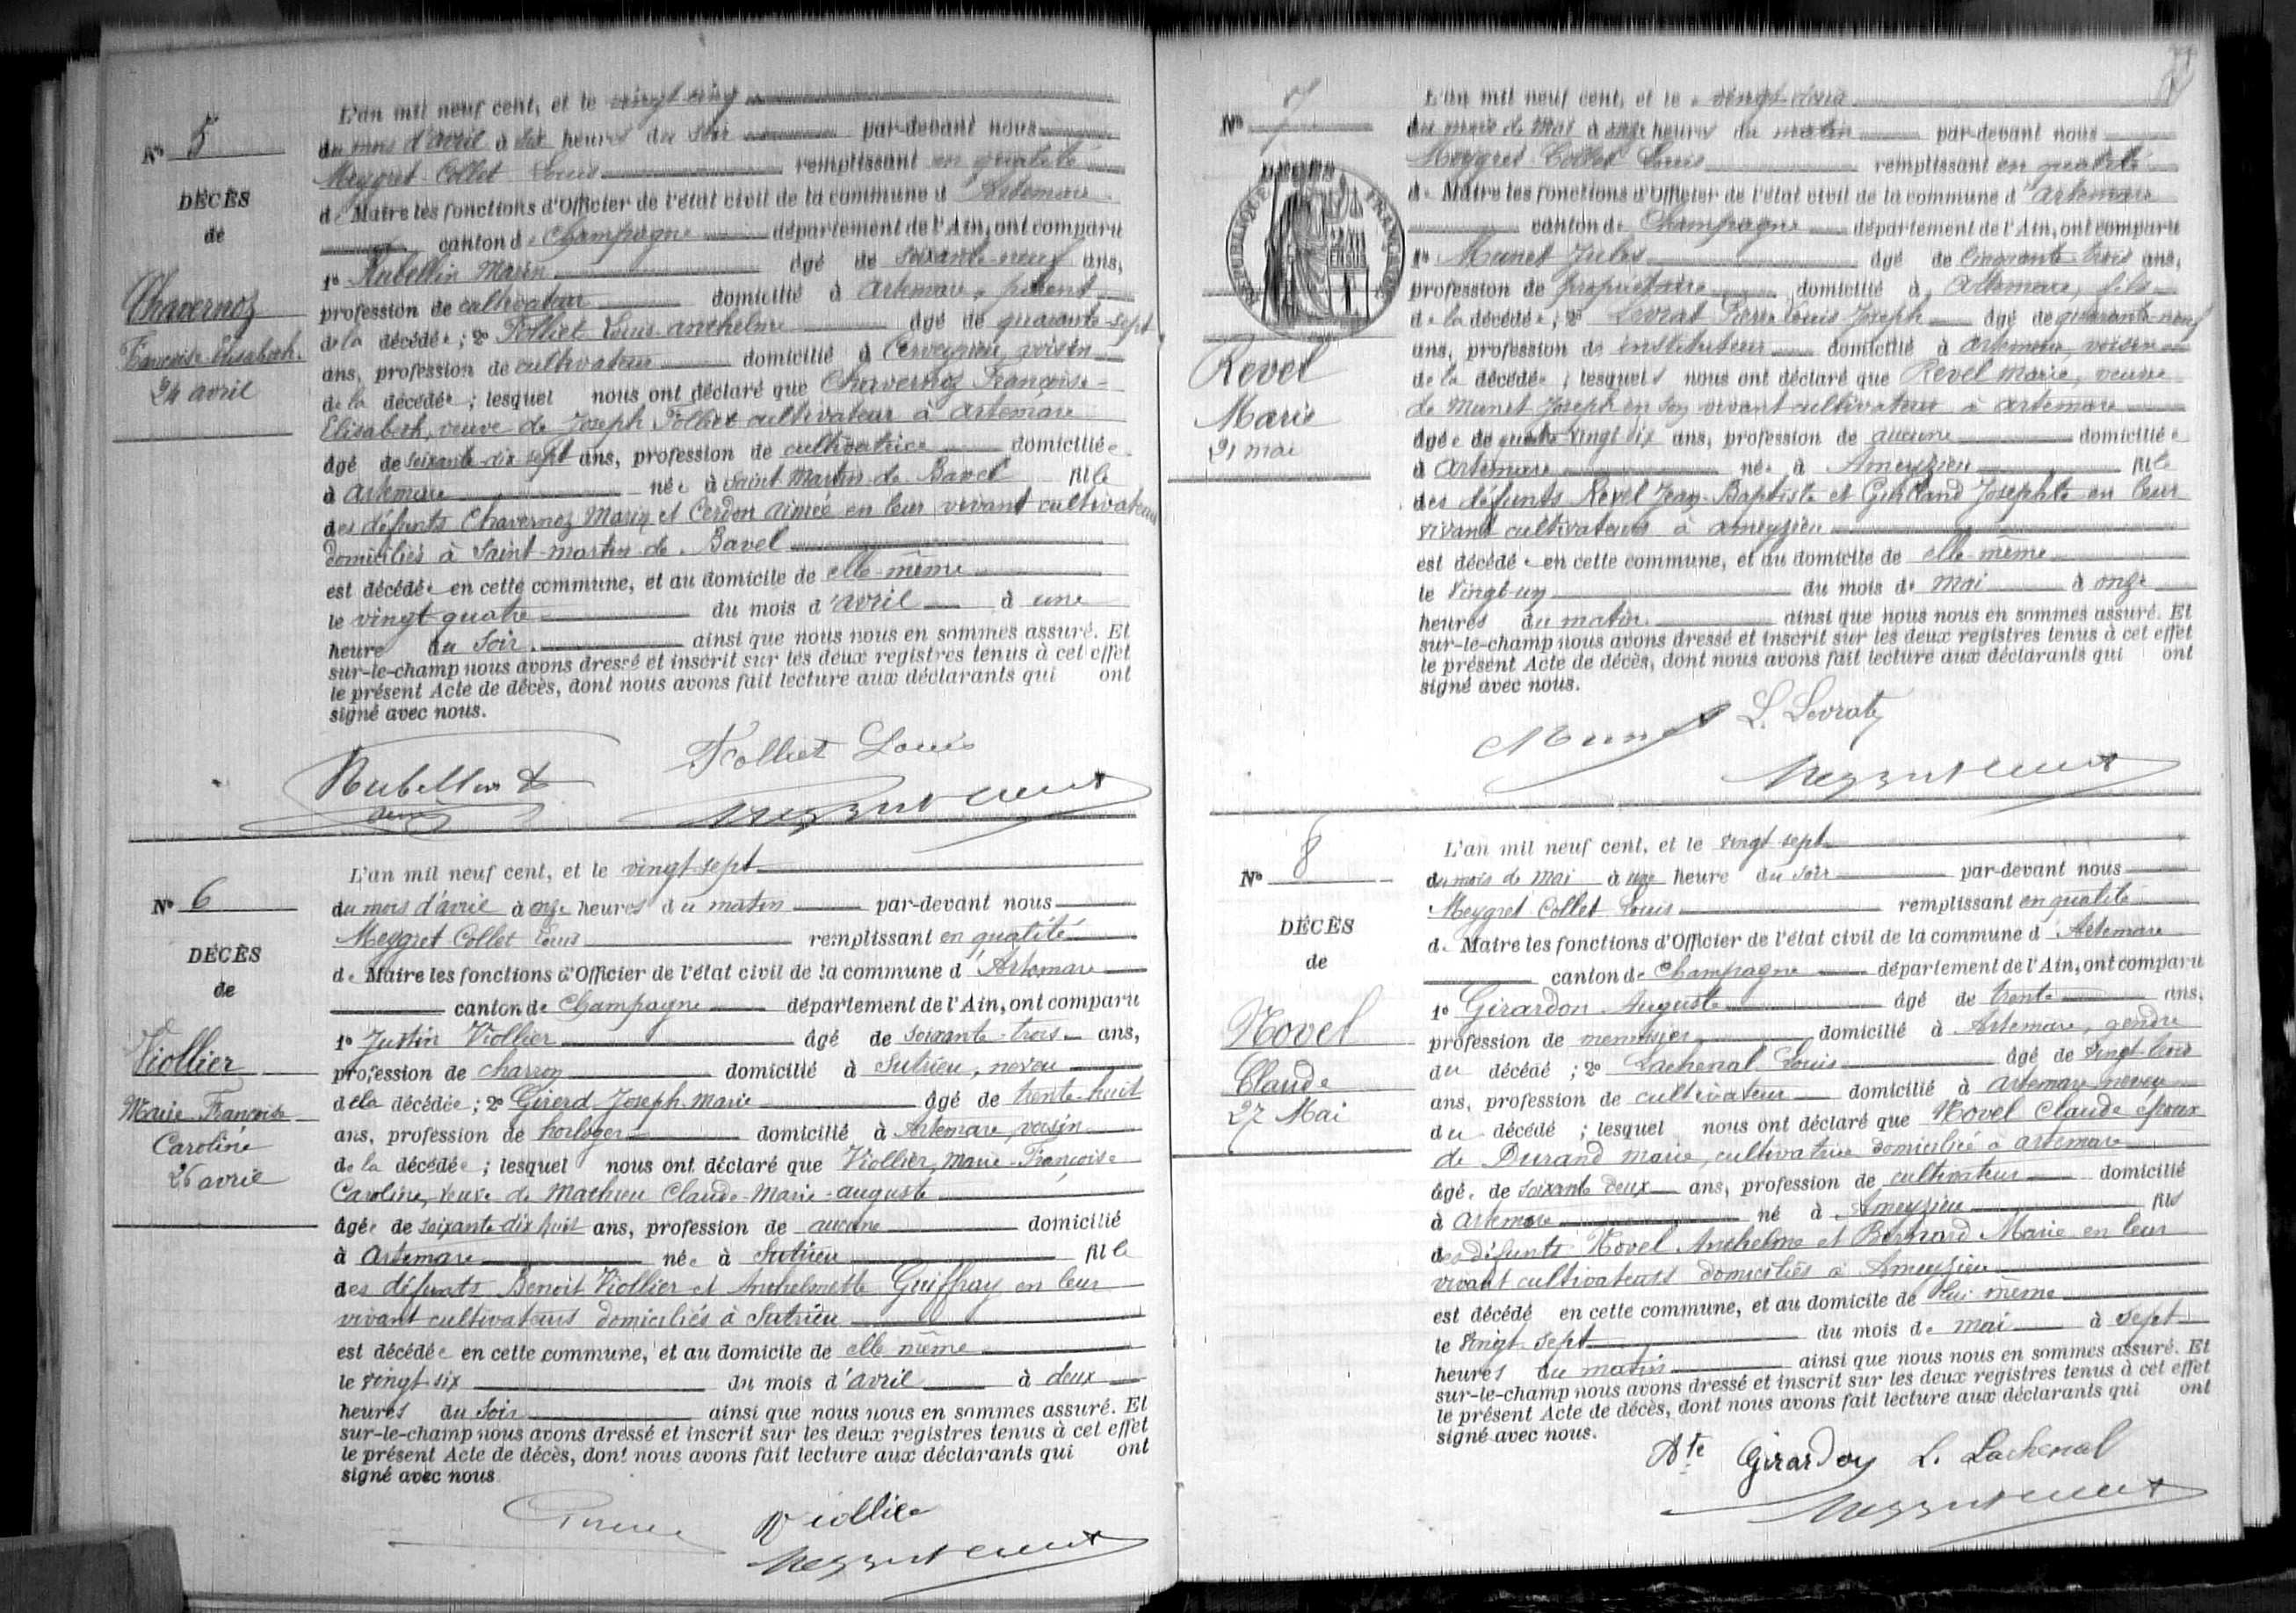 N° 5
DÉCÈS
de
Chavernoz
Françoise Elisabeth.
24 avril
L'an mil neuf cent, et le vingt-cinq
du mois d'avril à six heures du soir par-devant nous
Meygret-Collet Louis remplissant en qualité
de Maire les fonctions d'Officier de l'état civil de la commune d'Artemare
canton de Champagne département de l'Ain, ont comparu
1° Rubellin Marin âgé de soixante-neuf ans,
profession de cultivateur domicilié à Artemare, parent
de la décédée; 2° Folliet Louis-Anthelme âgé de quarante-sept
ans, profession de cultivateur domicilié à Cerveyrieu, voisin
de la décédée; lesquel nous ont déclaré que Chavernoz Françoise-
Elisabeth, veuve de Joseph Folliet cultivateur à Artemare
âgé de soixante-dix sept ans, profession de cultivatrice domiciliée
à Artemare née à Saint Martin-de-Bavel fille
des défunts Chavernoz Marin et Cerdon Aimée en leur vivant cultivateurs
domiciliés à Saint-Martin-de-Bavel
est décédée en cette commune, et au domicile de elle-même
le vingt-quatre du mois d'avril à une
heure du soir ainsi que nous nous en sommes assuré. Et
sur-le-champ nous avons dressé et inscrit sur les deux registres tenus à cet effet
le présent Acte de décès, dont nous avons fait lecture aux déclarants qui ont
signé avec nous.
Rubellin
Folliet Louis
N° 6
DÉCÈS
de
Viollier
Marie Françoise
Caroline
26 avril
L'an mil neuf cent, et le vingt-sept
du mois d'avril à onze heures du matin par-devant nous
Meygret Collet Louis remplissant en qualité
de Maire les fonctions d'Officier de l'état civil de la commune d'Artemare
canton de Champagne département de l'Ain, ont comparu
1° Justin Viollier âgé de soixante-trois ans,
profession de charron domicilié à Sutrieu, neveu
de la décédée; 2° Girerd Joseph-Marie âgé de trente-huit
ans, profession de horloger domicilié à Artemare, voisin
de la décédée; lesquel nous ont déclaré que Viollier, Marie-Françoise
Caroline, veuve de Mathieu Claude-Marie-Auguste
âgée de soixante-dix huit ans, profession de aucune domicilié
à Artemare née à Sutrieu fille
des défunts Benoit Viollier et Anthelmette Guiffray en leur
vivant cultivateurs domiciliés à Sutrieu
est décédée en cette commune, et au domicile de elle même
le vingt-six du mois d'avril à deux
heures du soir ainsi que nous nous en sommes assuré. Et
sur-le-champ nous avons dressé et inscrit sur les deux registres tenus à cet effet
le présent Acte de décès, dont nous avons fait lecture aux déclarants qui ont
signé avec nous
Viollier
N° 7
RÉPUBLIQUE FRANÇAISE
Revel
Marie
21 mai
L'an mil neuf cent, et le vingt-deux
du mois de Mai à onze heures du matin par-devant nous
Meygret-Collet Louis remplissant en qualité
de Maire les fonctions d'Officier de l'état civil de la commune d'Artemare
canton de Champagne département de l'Ain, ont comparu
1° Munet Jules âgé de cinquante-trois ans,
profession de propriétaire domicilié à Artemare, fils
de la décédée; 2° Levrat Pierre Louis Joseph âgé de quarante-neuf
ans, profession de instituteur domicilié à Artemare, voisin
de la décédée; lesquels nous ont déclaré que Revel Marie, veuve
de Munet Joseph en son vivant cultivateur à Artemare
âgée de quatre vingt dix ans, profession de aucune domiciliée
à Artemare née à Ameyzieu fille
des défunts Revel Jean-Baptiste et Josephte en leur
vivant cultivateurs à Ameyzieu
est décédée en cette commune, et au domicile de elle-même
le vingt-un du mois de mai à onze
heures du matin ainsi que nous nous en sommes assuré. Et
sur-le-champ nous avons dressé et inscrit sur les deux registres tenus à cet effet
le présent Acte de décès, dont nous avons fait lecture aux déclarants qui ont
signé avec nous.
Munet L. Levrat
N° 8
DÉCÈS
de
Novel
Claude
27 Mai
L'an mil neuf cent, et le vingt-sept
du mois de mai à une heure du soir par-devant nous
Meygret Collet Louis remplissant en qualité
de Maire les fonctions d'Officier de l'état civil de la commune d'Artemare
canton de Champagne département de l'Ain, ont comparu
1° Girardon Auguste âgé de trente ans,
profession de menuisier domicilié à Artemare, gendre
du décédé; 2° Lachenal Louis âgé de vingt-trois
ans, profession de cultivateur domicilié à Artemare neveu
du décédé; lesquel nous ont déclaré que Novel Claude époux
de Durand Marie, cultivatrice domiciliée à Artemare
âgé de soixante deux ans, profession de cultivateur domicilié
à Artemare né à Ameyzieu fils
des défunts Novel Anthelme et Bernard Marie en leur
vivant cultivateurs domiciliés à Ameyzieu
est décédé en cette commune, et au domicile de lui même
le vingt-sept du mois de mai à sept
heures du matin ainsi que nous nous en sommes assuré. Et
sur-le-champ nous avons dressé et inscrit sur les deux registres tenus à cet effet
le présent Acte de décès, dont nous avons fait lecture aux déclarants qui ont
signé avec nous.
Ate Girardon L. Lachenal